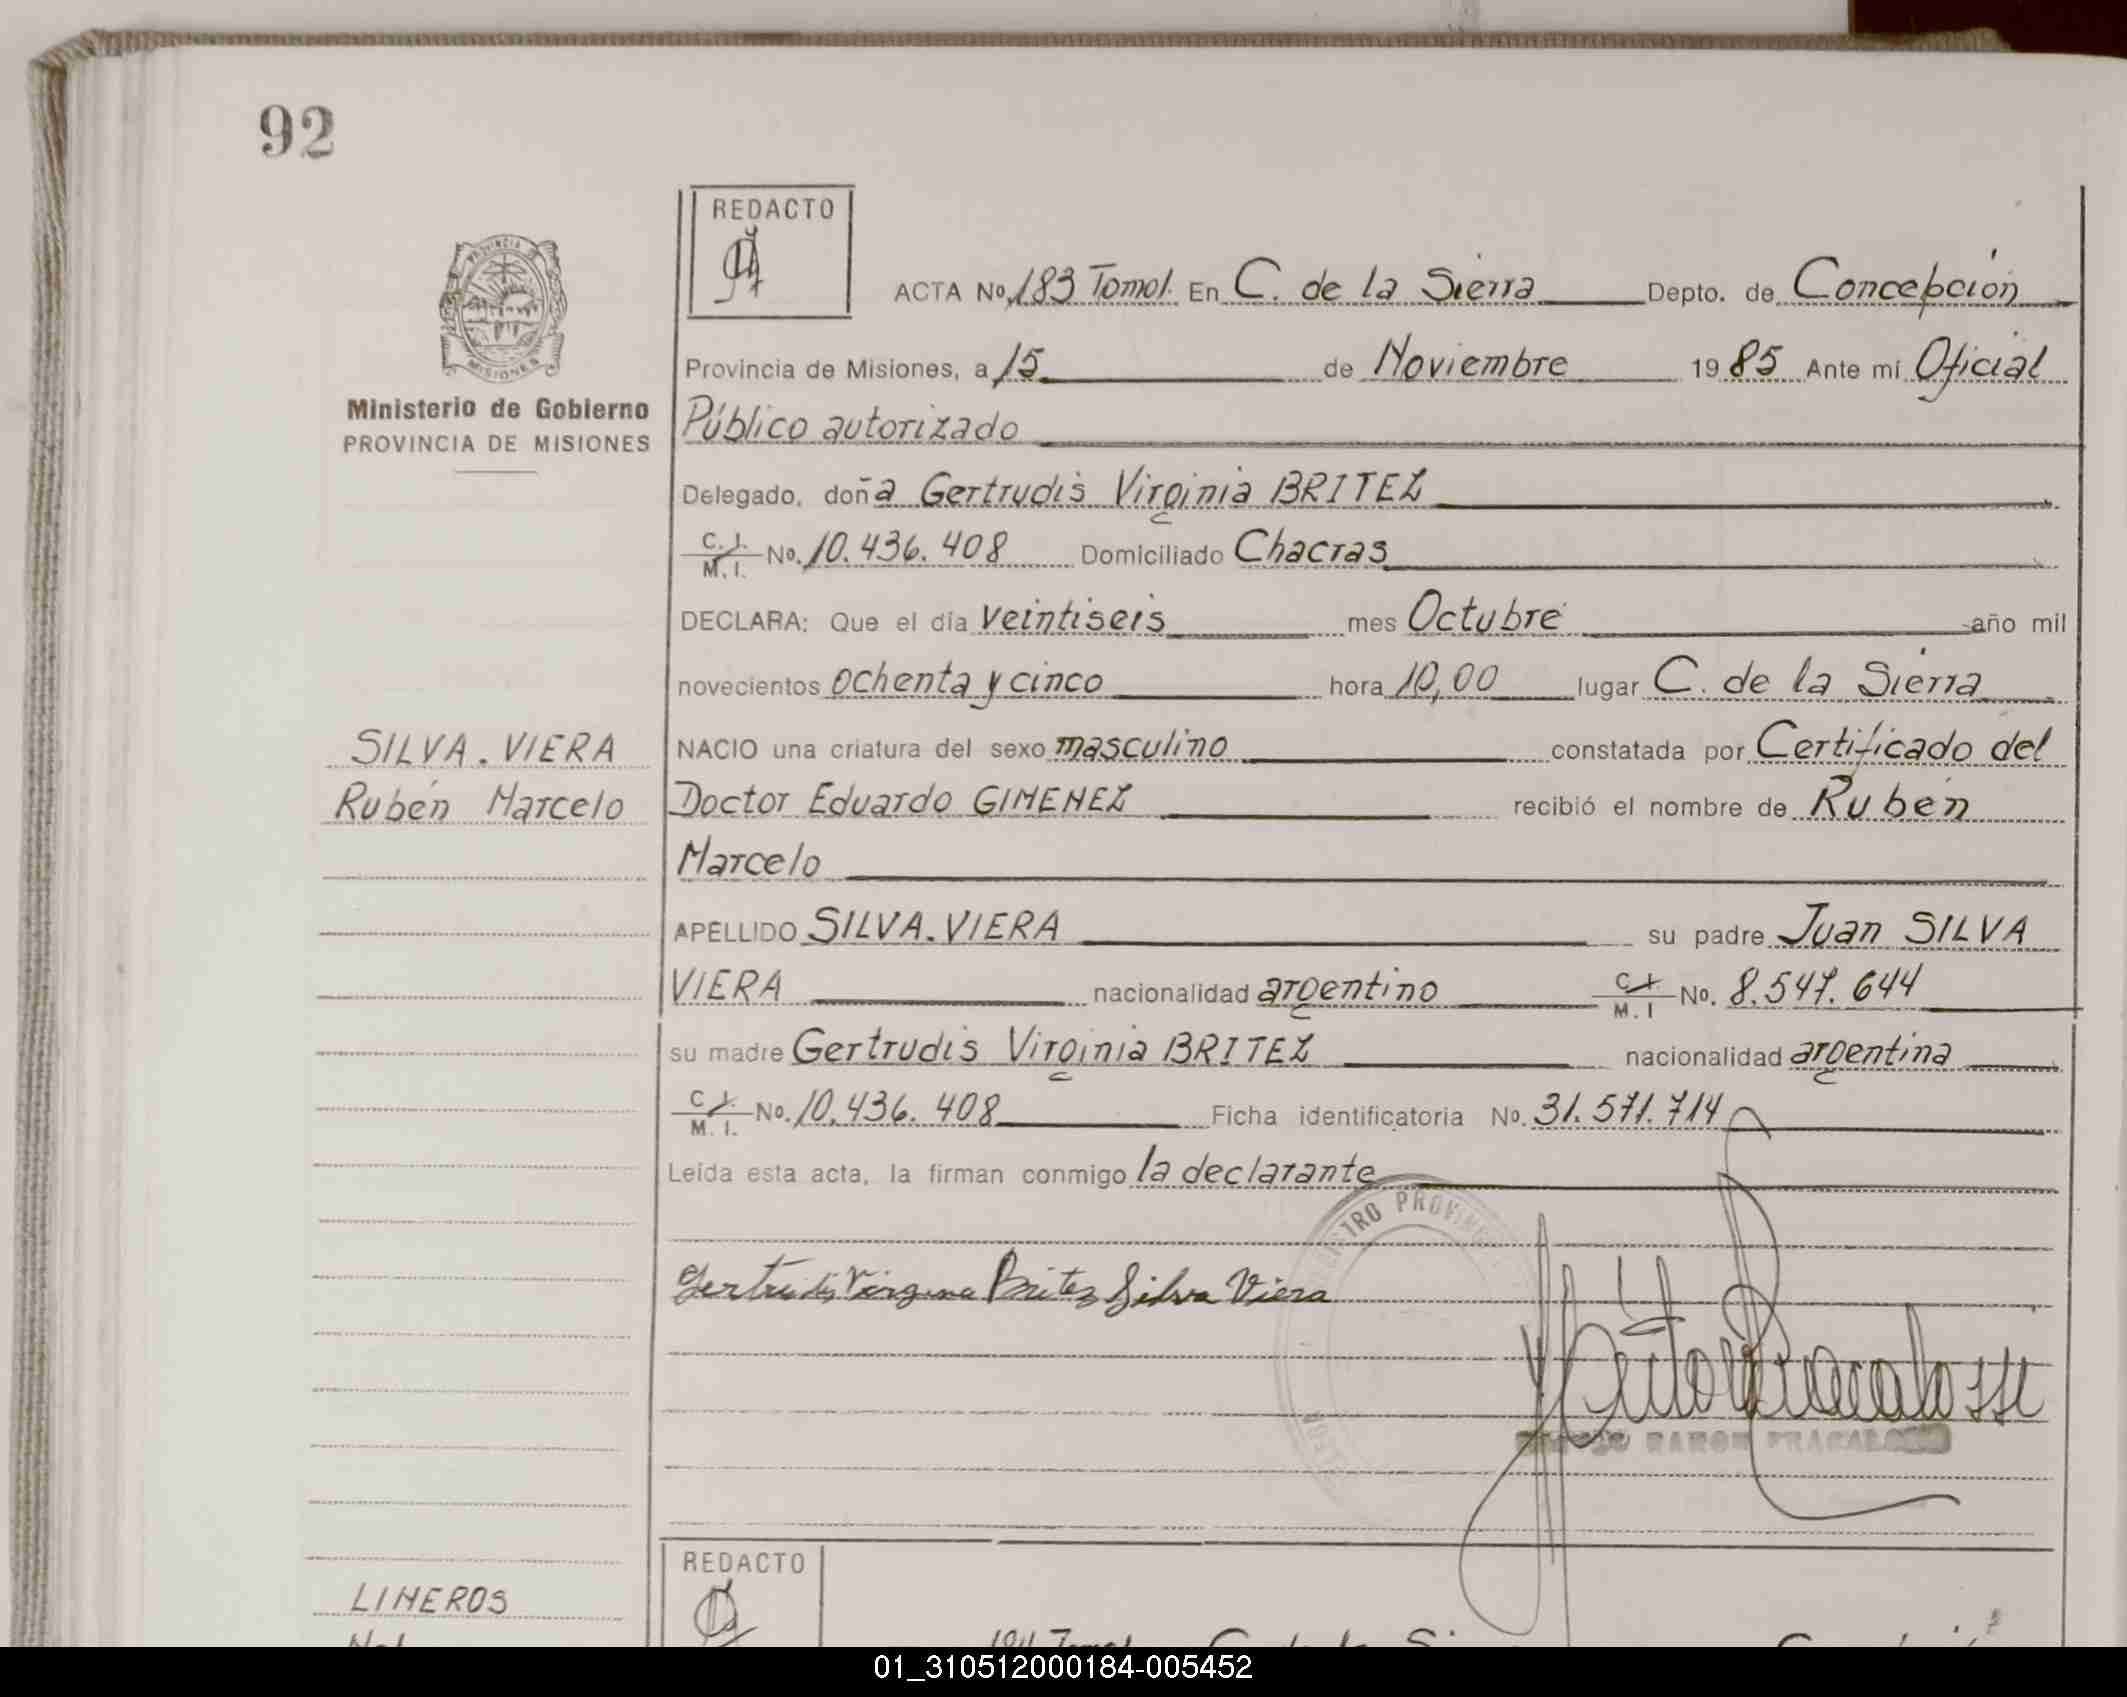 92
REDACTO
PROVINCIA
MISIONES
Ministerio de Gobierno
PROVINCIA DE MISIONES
ACTA No. 183 Tomo I. En C. de la Sierra Depto. de Concepción
Provincia de Misiones, a 15 de Noviembre 1985 Ante mí Oficial
Público autorizado
Delegado, doña Gertrudis Virginia BRITEZ
C. I. M. I. No. 10.436.408 Domiciliado Chacras
DECLARA: Que el día veintiseis mes Octubre año mil
novecientos ochenta y cinco hora 10,00 lugar C. de la Sierra
SILVA.VIERA
Rubén Marcelo
NACIO una criatura del sexo masculino constatada por Certificado del
Doctor Eduardo GIMENEZ recibió el nombre de Rubén
Marcelo
APELLIDO SILVA.VIERA su padre Juan SILVA
VIERA nacionalidad argentino C.I. M. I No. 8.547.644
su madre Gertrudis Virginia BRITEZ nacionalidad argentina
C I. M. I. No. 10.436.408 Ficha identificatoria No. 31.571.714
Leída esta acta, la firman conmigo la declarante
Gertrudis Virginia Britez Silva Viera
REDACTO
LINEROS
01_310512000184-005452